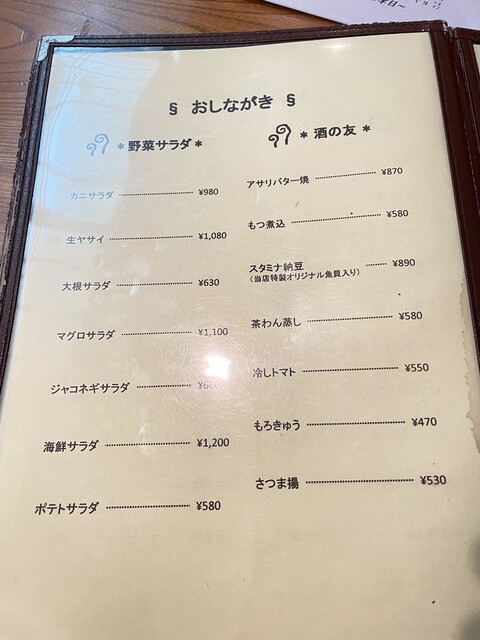 § おしながき §
＊野菜サラダ＊
カニサラダ ¥980
生ヤサイ ¥1,080
大根サラダ ¥630
マグロサラダ ¥1,100
ジャコネギサラダ
海鮮サラダ ¥1,200
ポテトサラダ ¥580
＊酒の友＊
アサリバター焼 ¥870
もつ煮込 ¥580
スタミナ納豆 ¥890
（当店特製オリジナル魚貝入り）
茶わん蒸し ¥580
冷しトマト ¥550
もろきゅう ¥470
さつま揚 ¥530